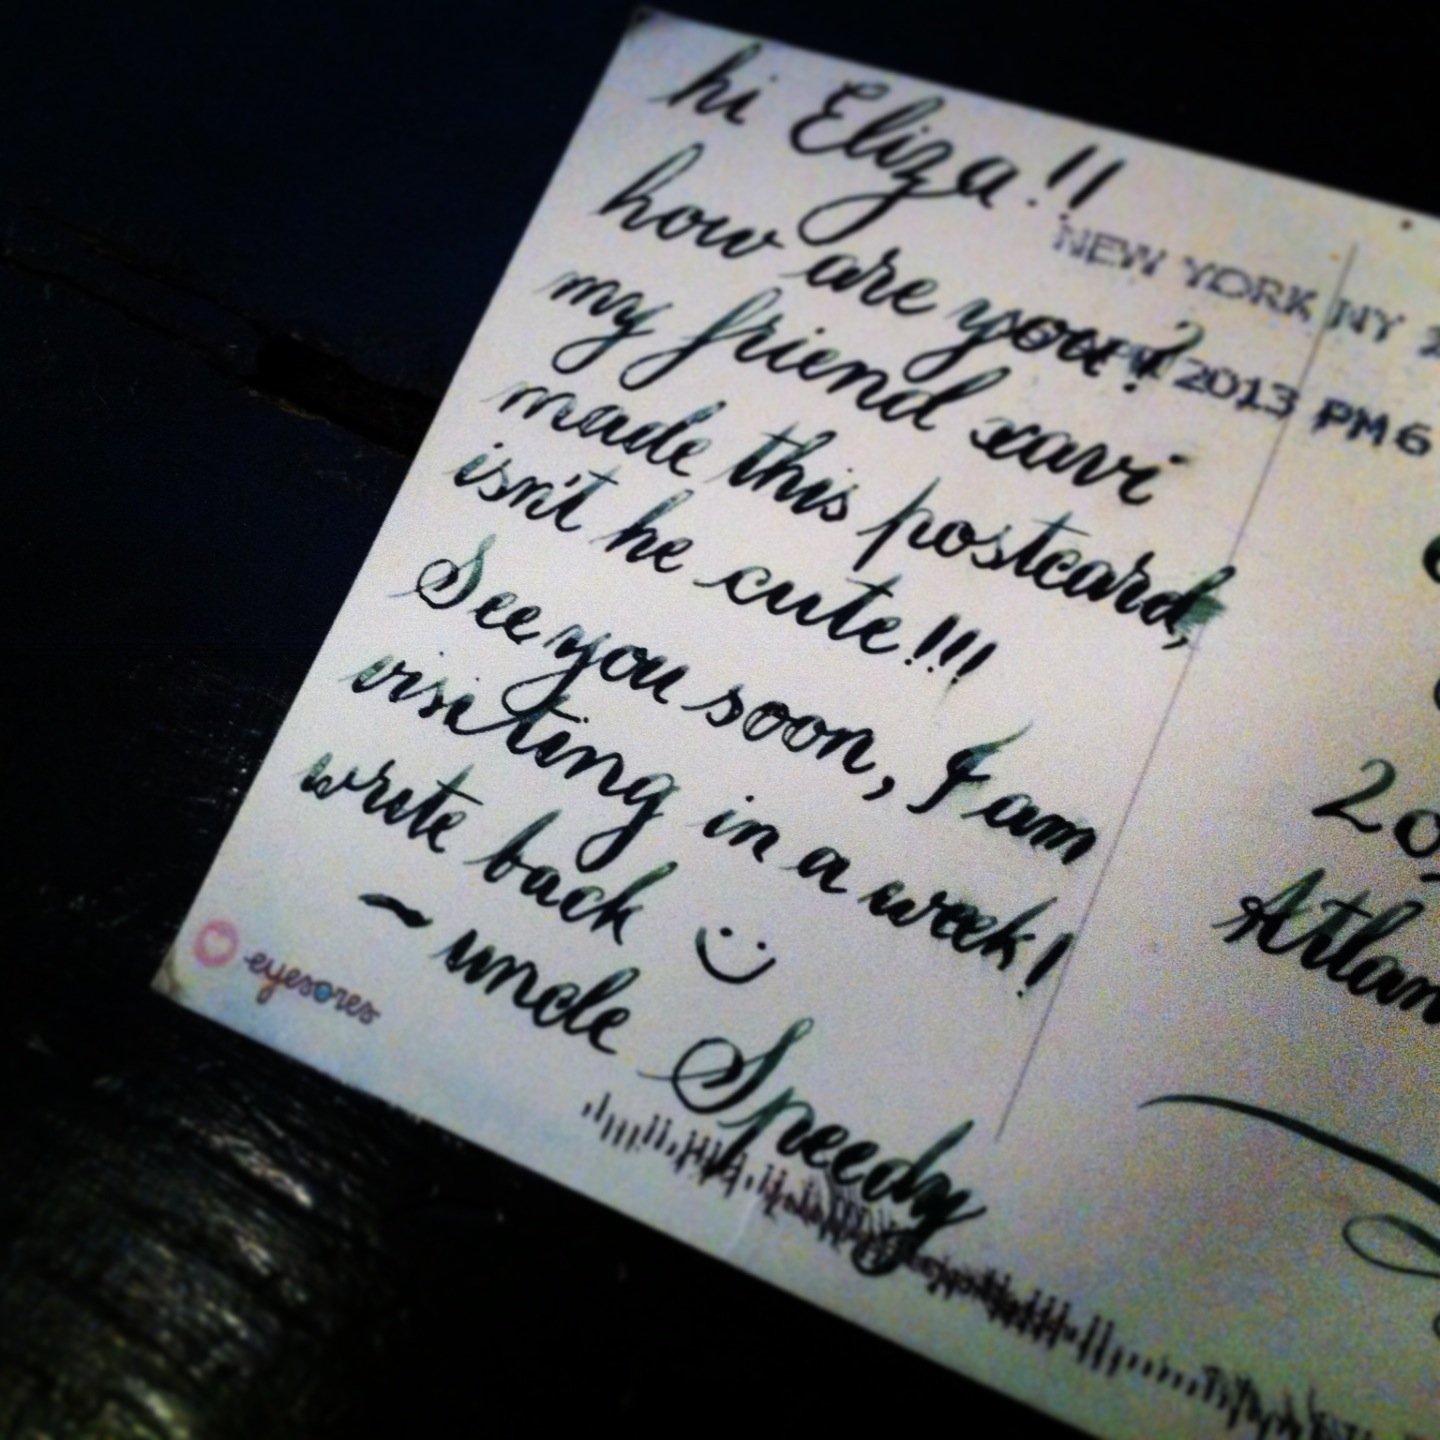 hi Eliza!!
how are you?
my friend xavi
made this postcard,
isn't he cute!!!
See you soon, I am
visiting in a week!
write back
~ uncle Speedy
eyesores
NEW YORK NY
2013 PM 6